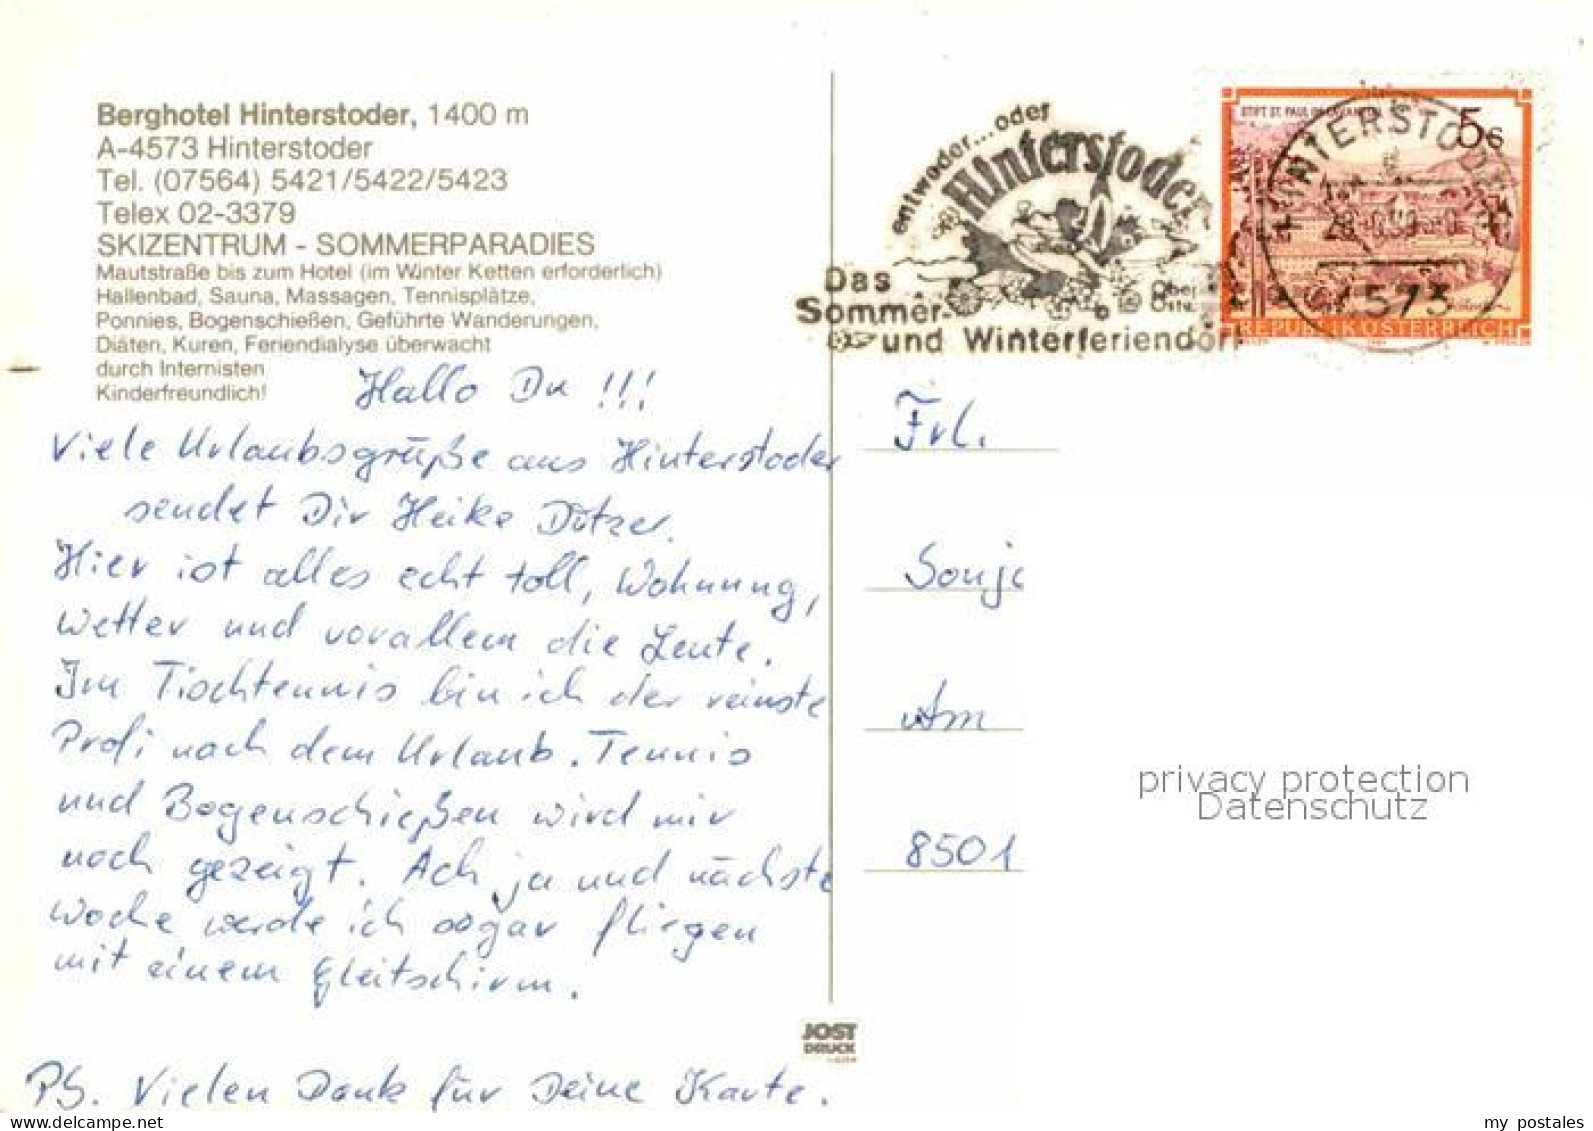 Berghotel Hinterstoder, 1400 m
A-4573 Hinterstoder
Tel. (07564) 5421/5422/5423
Telex 02-3379
SKIZENTRUM - SOMMERPARADIES
Mautstraße bis zum Hotel (im Winter Ketten erforderlich)
Hallenbad, Sauna, Massagen, Tennisplätze,
Ponnies, Bogenschießen, Geführte Wanderungen,
Diäten, Kuren, Feriendialyse überwacht
durch Internisten
Kinderfreundlich!
Hallo Du !!!
Viele Urlaubsgrüße aus Hinterstoder
sendet Dir Heike Dötzer.
Hier ist alles echt toll, Wohnung,
Wetter und vorallem die Leute.
Im Tischtennis bin ich der reinste
Profi nach dem Urlaub. Tennis
und Bogenschießen wird mir
noch gezeigt. Ach ja und nächste
Woche werde ich sogar fliegen
mit einem Gleitschirm.
PS. Vielen Dank für Deine Karte.
JOST
DRUCK
entweder...oder
Hinterstoder
Das
Sommer-
und Winterferiendorf
STIFT ST. PAUL
5 S
REPUBLIK ÖSTERREICH
HINTERSTODER
4573
Frl.
Sonja
Am
8501
privacy protection
Datenschutz
my postales